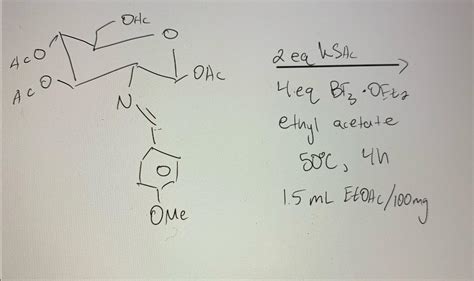 OAc
AcO
O
AcO
OAc
N
OMe
2 eq KSAc
4 eq BF3 · OEt2
ethyl acetate
50°C, 4h
1.5 mL EtOAc/100mg